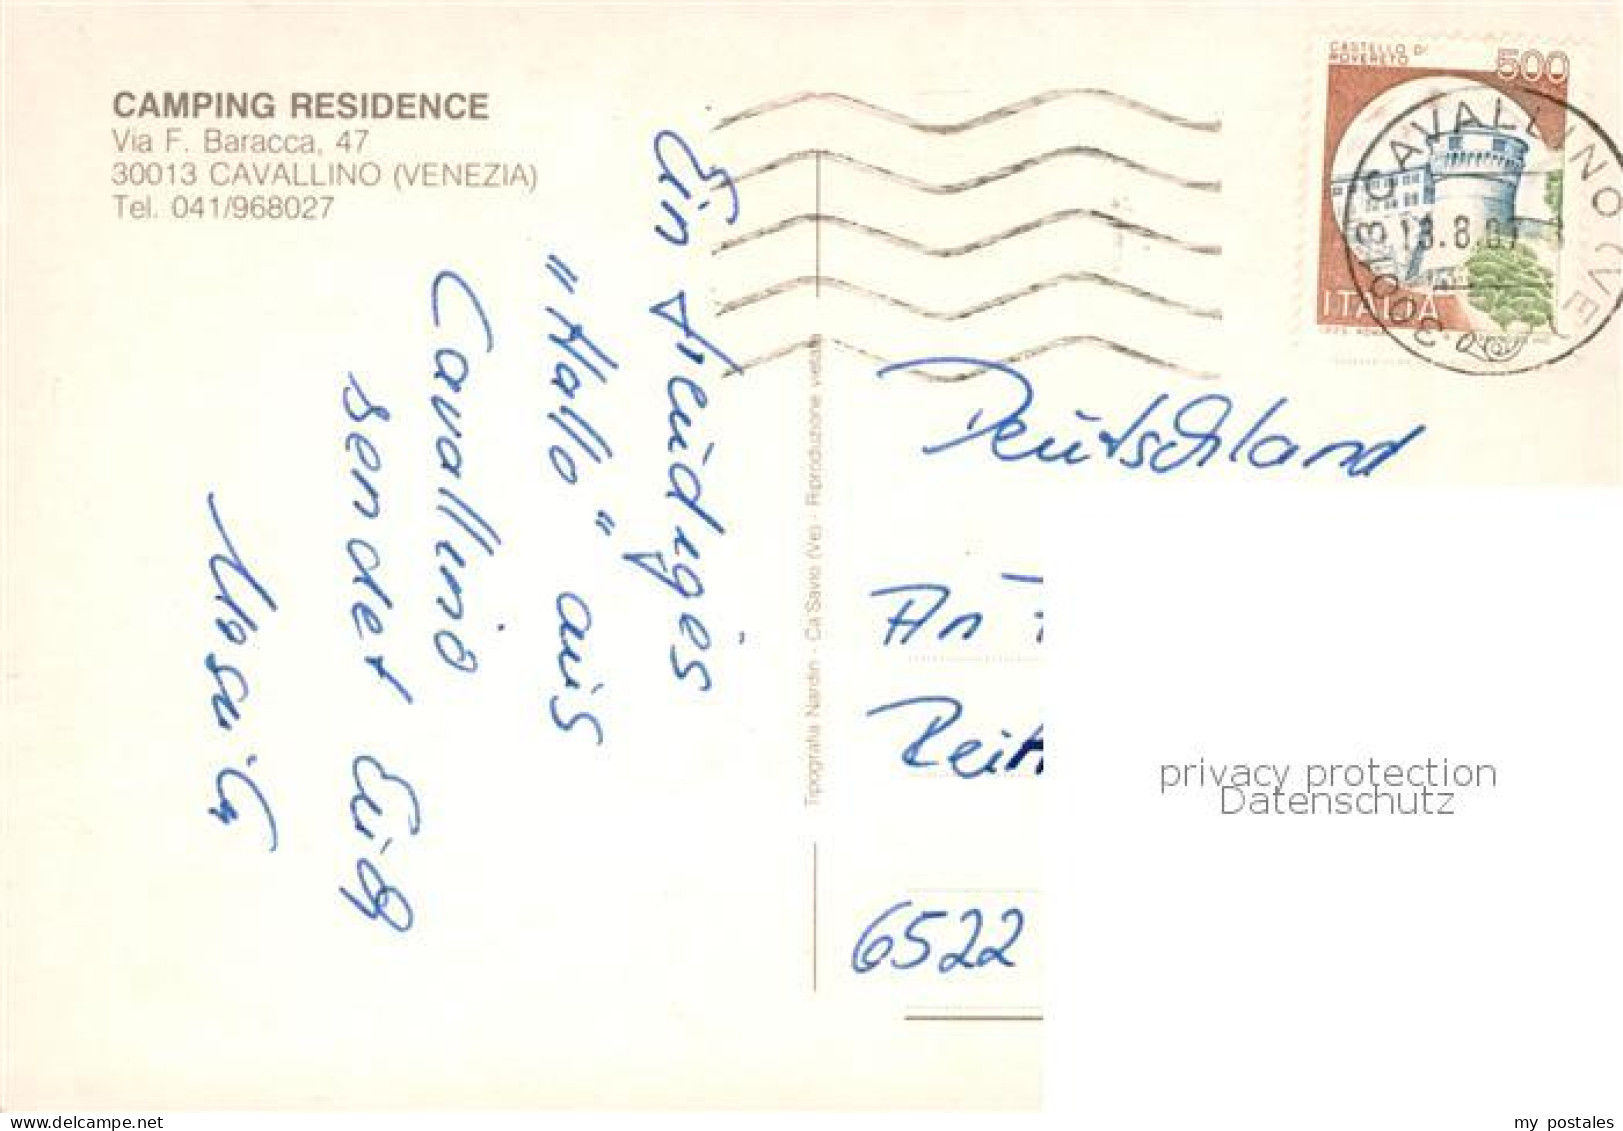 CAMPING RESIDENCE
Via F. Baracca, 47
30013 CAVALLINO (VENEZIA)
Tel. 041/968027
Ein freudiges
"Hallo" aus
Cavallino
sendet Euch
Tipografia Nardin - Ca'Savio (Ve) - Riproduzione vietata
CASTELLO DI
ROVERETO
500
ITALIA
30013 CAVALLINO (VE
Deutschland
An
Reit
6522
privacy protection
Datenschutz
my postales